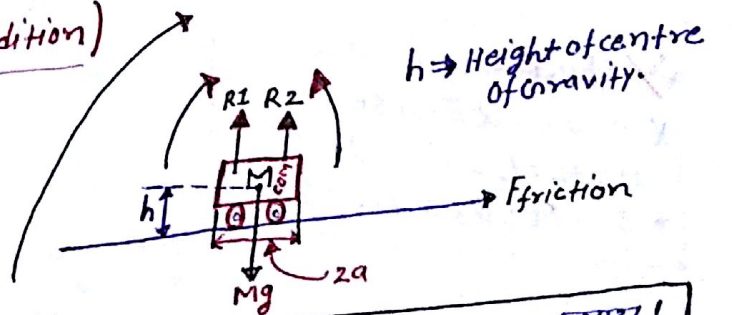 dition)
h⇒ Height of centre
of Gravity.
R1 R2
M
COM
h
Ffriction
2a
Mg